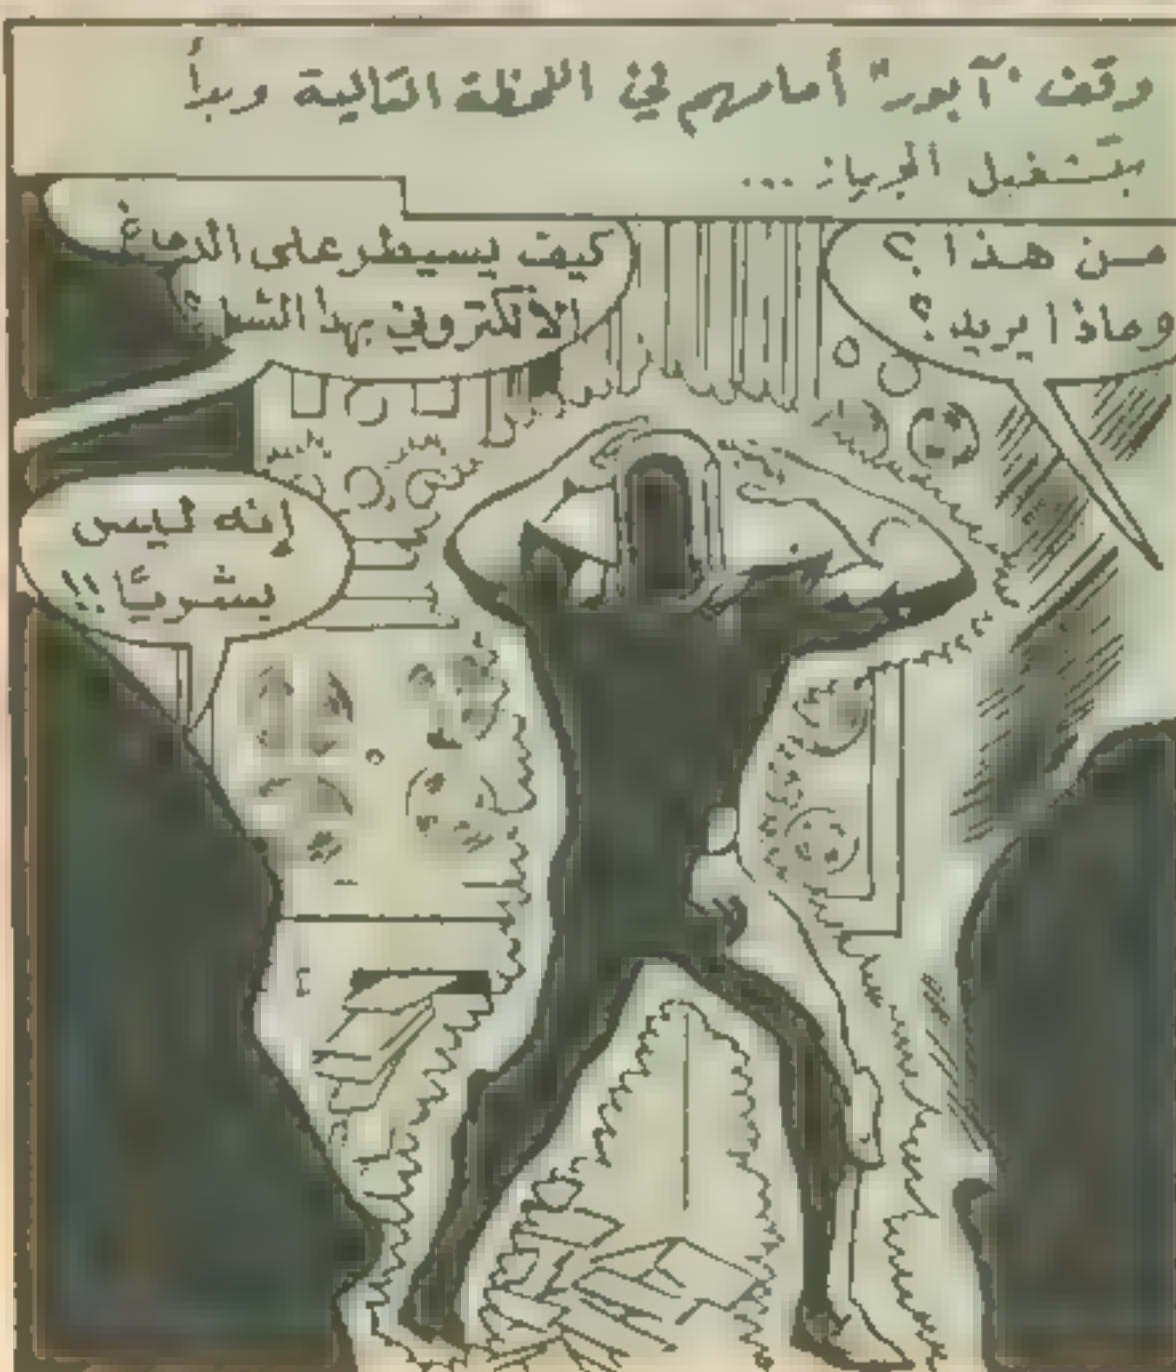 وقف "آبور" أمامهم في اللحظة التالية وبدأ
بتشغيل الجهاز ...
من هذا ؟
وماذا يريد ؟
كيف يسيطر على الدماغ
الالكتروني بهذا الشكل ؟
إنه ليس
بشريًا !!